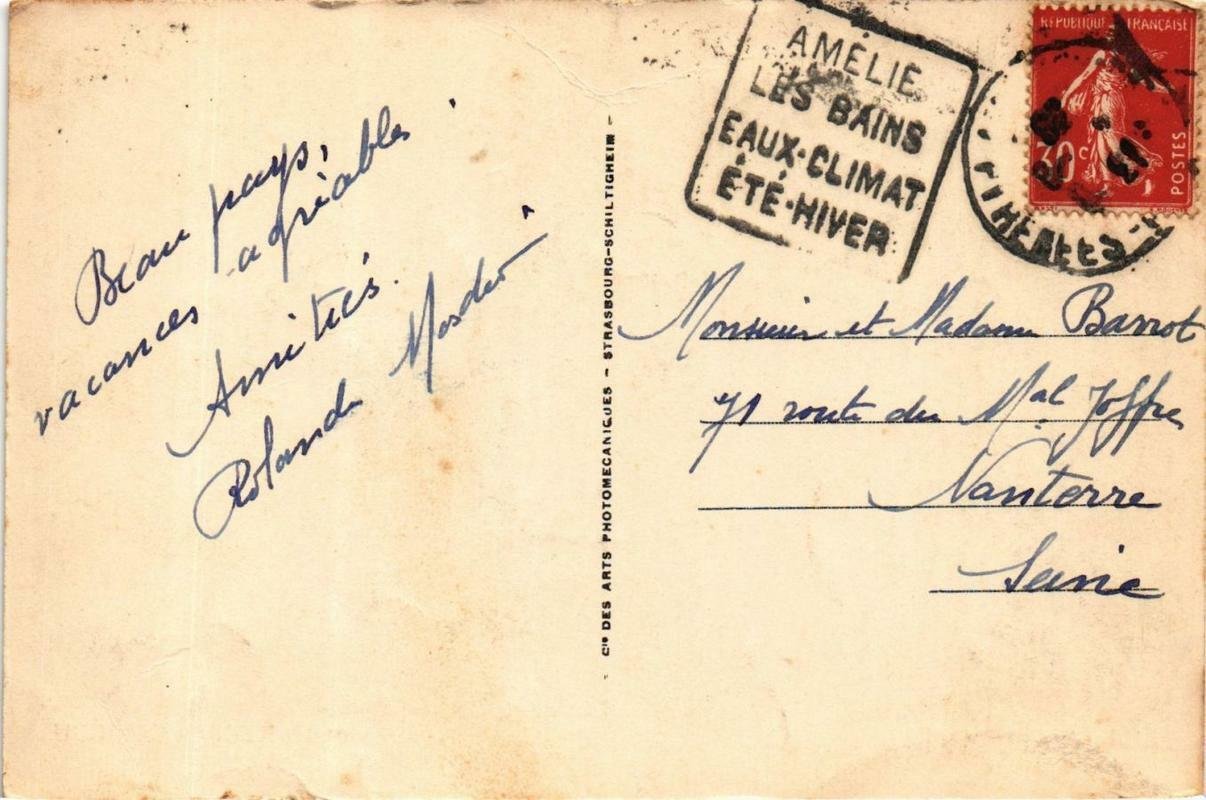 Beau pays,
vacances agréables
Amitiés.
Rolande
Cie DES ARTS PHOTOMECANIQUES - STRASBOURG-SCHILTIGHEIM -
AMÉLIE
LES BAINS
EAUX-CLIMAT
ÉTÉ-HIVER
REPUBLIQUE FRANÇAISE
30 c
POSTES
Monsieur et Madame Barrot
71 route du Mal Joffre
Nanterre
Seine